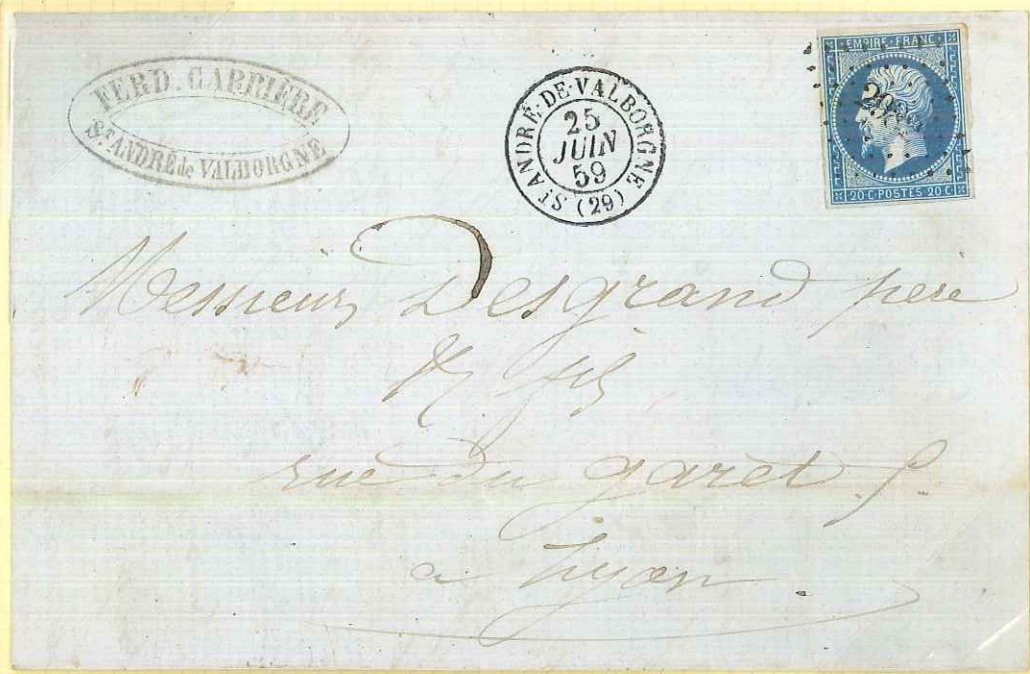 FERD. CARRIÈRE
St. ANDRÉ de VALBORGNE
St ANDRÉ-DE-VALBORGNE (29)
25
JUIN
59
EMPIRE FRANC
20 C POSTES 20 C
Messieurs Desgrand père
& fils
rue du garet
a Lyon